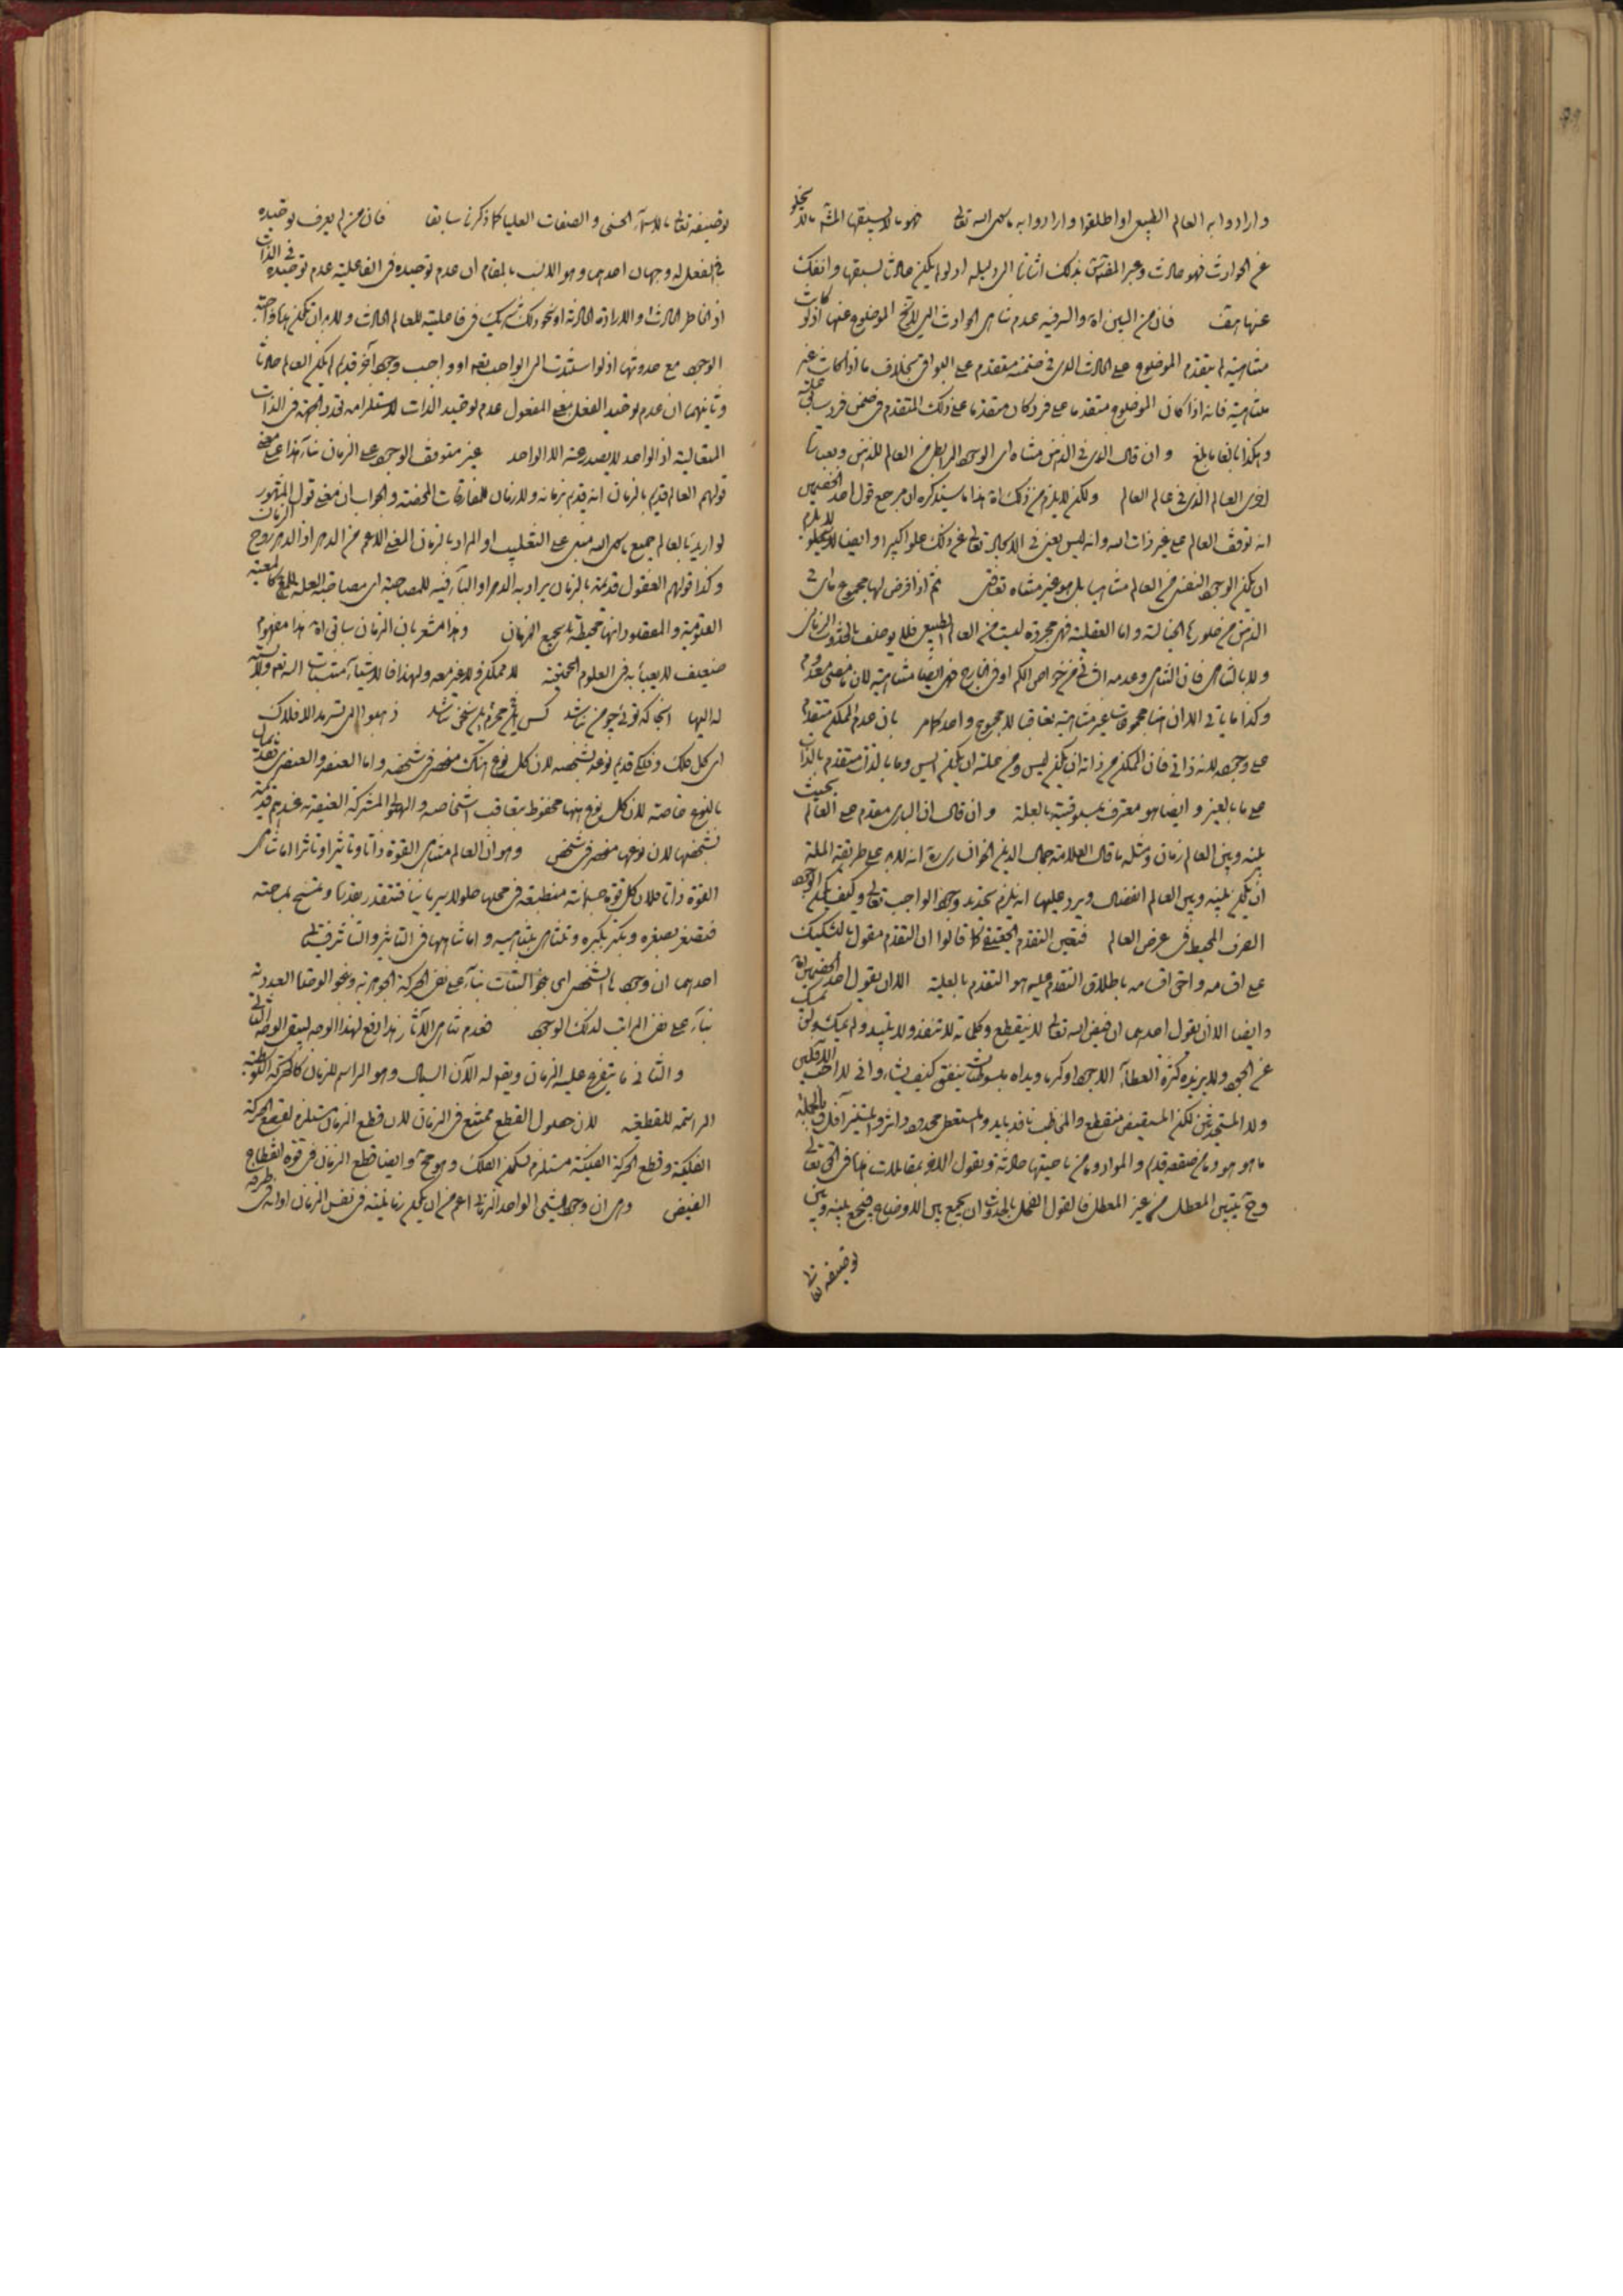 وارادوا به العالم الطبيعى او اطلقوا وارادوا به ما سوى الله تعالى فهو ما لا يسبقها المشه ما لا يخلو
عن الحوادث فهو حادث وعبر المقدس بذلك اشارة الى دليله اذ لو لم يكن حادثا لسبقها وانفك
عنها هف فان من البين اه والسر فيه عدم تناهى الحوادث التى لا يخ الموضوع عنها اذ لو كانت
متناهية لم يتقدم الموضوع على الحادث الذى فى ضمنه متقدم على البواقى بخلاف ما اذا كانت غير
متناهية فانه اذا كان الموضوع متقدما على فرد كان متقدما على ذلك المتقدم فى ضمن فرد سابق عليه
وهكذا بالغا ما بلغ وان قال الذى فى الذهن متناه اى الوجود الرابطى من العالم للذهن وبعبارة
اخرى العالم الذى فى عالم العالم ولكن لا يلزم من ذلك اه هذا ما سيذكره ان مرجع قول احد الخصمين
انه توقف العالم على غير ذات الله وانه ليس بغنى فى الايجاد تعالى عن ذلك علوا كبيرا وايضا لا يلزم
ان يكون الوجود النفسى من العالم متناهيا بل هو غير متناه تعاقبى ثم اذا فرض لها مجموع ما فى
الذهن من صورها الخيالية واما العقلية فهى مجردة ليست من العالم الطبيعى فلا يوصف بالحدوث الزمانى
ولا بالتناهى فان التناهى وعدمه انما هى من خواص الكم او فى الخارج فهى ايضا متناهية لان ما مضى معدوم
وكذا ما ياتى الا ان هنا مجموعات غير متناهية تعاقبا لا مجموع واحد كامر بان عدم الممكن متقدم
على وجوده لانه ذاتى فان الممكن من ذاته ان يكون ليس ومن علته ان يكون ايس وما بالذات متقدم بالذات
على ما بالغير وايضا هو معترف بمسبوقيته بالعلة وان قال ان البارى مقدم على العالم بحيث
بينه وبين العالم زمان ومثله ما قال العلامة جمال الدين الخوانسارى ره انه لابد على طريقة الملة
ان يكون بينه وبين العالم انفصال ويرد عليهما انه يلزم تحديد وجود الواجب تعالى وكيف يكون الوجود
الصرف المحيط فى عرض العالم فتعين التقدم الحقيقى كما قالوا ان التقدم مقول بالتشكيك
على اقسامه واحق اقسامه باطلاق التقدم عليه هو التقدم بالعلية الا ان يقول احد الخصمين اه
وايضا الا ان يقول احدهما ان فيض الله تعالى لا ينقطع وكلماته لا تنفد ولا تبيد ولم يمسك
عن الجود ولا يزيده كثرة العطاء الا جودا وكرما ويداه مبسوطتان ينفق كيف يشاء وانى لا احب الآفلين
ولا المستجدين لكن المستفيض منقطع والمخاطب نافد بايد والمستعطى محدود داثر والمستنير آفل وبالجملة
ما هو هو وما من صقعه قديم والمواد وما من ناحيتها حادثة ويقول الاخر بمقابلات هذا فى الحق تعالى
وح يتبين المعطل من غير المعطل فالقول الفحل بالحدوث ان يجمع بين الاوضاع فيجمع بينه وبين
توصيفه تعالى
توصيفه تعالى بالاسماء الحسنى والصفات العليا كما ذكرنا سابقا فان من لم يعرف توحيده
فى الفعل له وجهان احدهما وهو الانسب بالمقام ان عدم توحيده فى الفاعلية عدم توحيده فى الذات
اذ الخاطر الحادث او الارادة الحادثة او نحو ذلك شريك فى فاعليته للعالم الحادث ولابد ان تكون هنا واجبة
الوجود مع حدوثها اذ لو استندت الى الواجب تعه او واجب وجود آخر قديم لم يكن العالم حادثا
وثانيهما ان عدم توحيد الفعل بمعنى المفعول عدم توحيد الذات لاستلزامه تعدد الجهة فى الذات
المتعالية اذ الواحد لا يصدر عنه الا الواحد غير متوقف الوجود على الزمان بناء هذا على معنى
قولهم العالم قديم بالزمان انه قديم بزمانه ولا زمان للمفارقات المحضة والجواب ان معنى قول المشهور
لو اريد بالعالم جميع ما سوى الله مبنى على التغليب او المراد بالزمان المعنى الاعم من الدهر اذ الدهر روح الزمان
وكذا قولهم العقول قديمة بالزمان يراد به الدهر او الباء فيه للمصاحبة اى مصاحبة العلة للمع كمعية
القيومية والمعقول انها محيطة بجميع الازمان وهذا مشعر بان الزمان ساقى اه هذا مفهوم
ضعيف لا يعبأ به فى العلوم الحقيقية لا ممكن ولا غير معه ولهذا فالاشياء منتسبات اليه تعه ولا نسبة
له اليها آنجا که توئى چو من نباشد کس محرم این سخن نباشد ذهبوا الى تسرمد الافلاك
اى كل فلك وفلكى قديم نوعه بشخصه لان كل نوع هناك منحصر فى شخصه واما العنصر والعنصرى فقديمان
بالنوع خاصة لان كل نوع منهما محفوظ بتعاقب اشخاصه والهيولى المشتركة العنصرية عندهم قديمة
بشخصها لان نوعها منحصر فى شخص وهو ان العالم متناهى القوة ذاتا وتاثيرا وتاثرا اما تناهى
القوة ذاتا فلان كل قوة جسمانية منطبعة فى محلها حلولا سريانيا فتتقدر بقدرها وتمسح بمساحته
فتصغر بصغره وتكبر بكبره وتتناهى بتناهيه واما تناهيها فى التاثير والتاثر فبيانه
احدهما ان وجودها الشخصى اى بنحو الثبات بناء على نفى الحركة الجوهرية وبنحو الوحدة العددية
بناء على نفى المراتب لذلك الوجود فعدم تناهى الآثار زمانا رافع لهذا الوجه ليبقى الوجه الثانى
والثانى ما يتفرع عليه الزمان ويقوله الآن السيال وهو الراسم للزمان كالحركة التوسطية
الراسمة للقطعية لان حصول القطع ممتنع فى الزمان لان قطع الزمان مستلزم لقطع الحركة
الفلكية وقطع الحركة الفلكية مستلزم لسكون الفلك وهو مح وايضا قطع الزمان فى قوة انقطاع
الفيض وهى ان وجود الشئ الواحد الزمانى اعم من ان يكون زمانيته فى نفس الزمان او انه فى طرفه